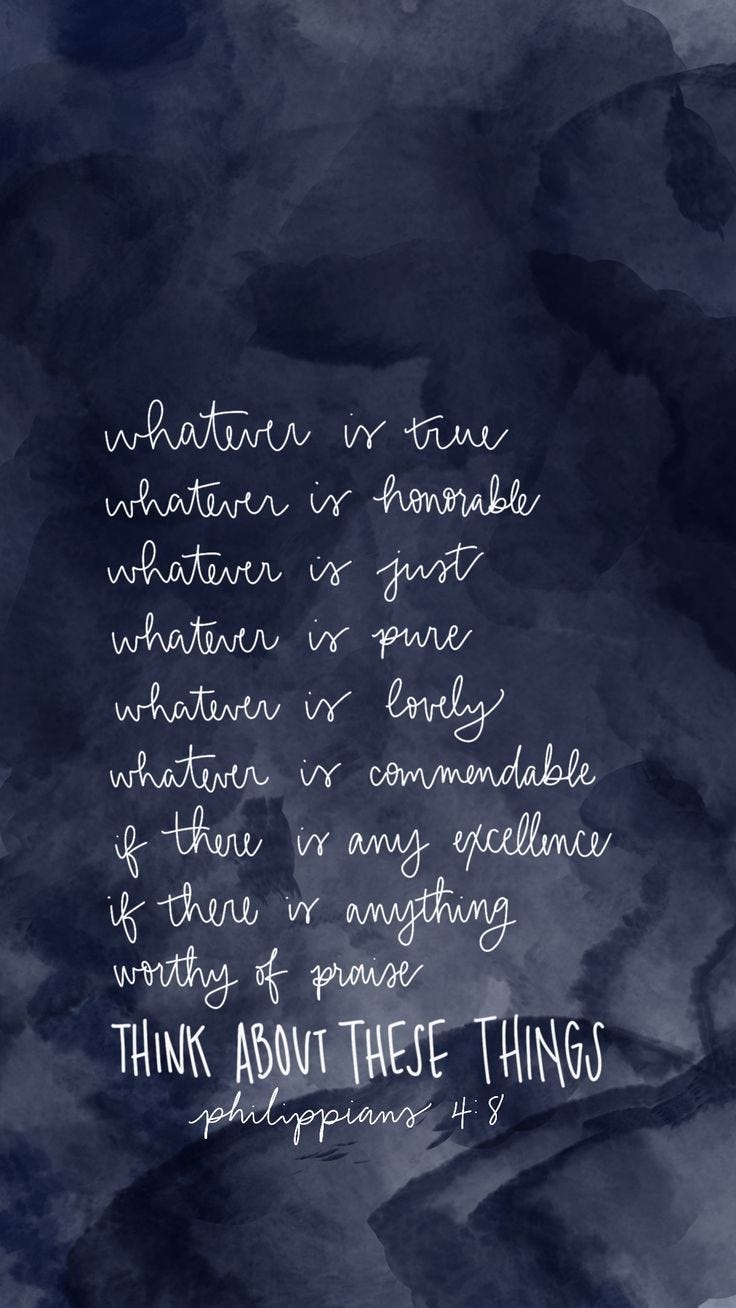 whatever is true
whatever is honorable
whatever is just
whatever is pure
whatever is lovely
whatever is commendable
if there is any excellence
if there is anything
worthy of praise
THINK ABOUT THESE THINGS
philippians 4:8